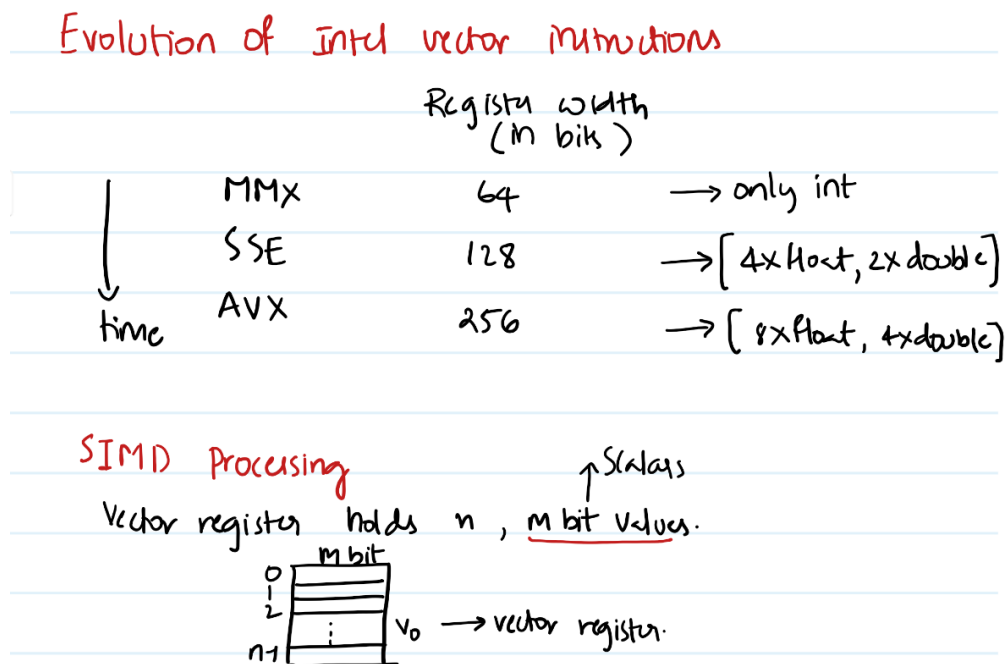 Evolution of Intel vector instructions
Register width
(in bits)
MMX 64 → only int
SSE 128 → [4x float, 2x double]
AVX 256 → [8x float, 4x double]
time
SIMD Processing
Scalars
Vector register holds n, m bit values.
m bit
0
1
2
⋮ V0 → vector register.
n-1